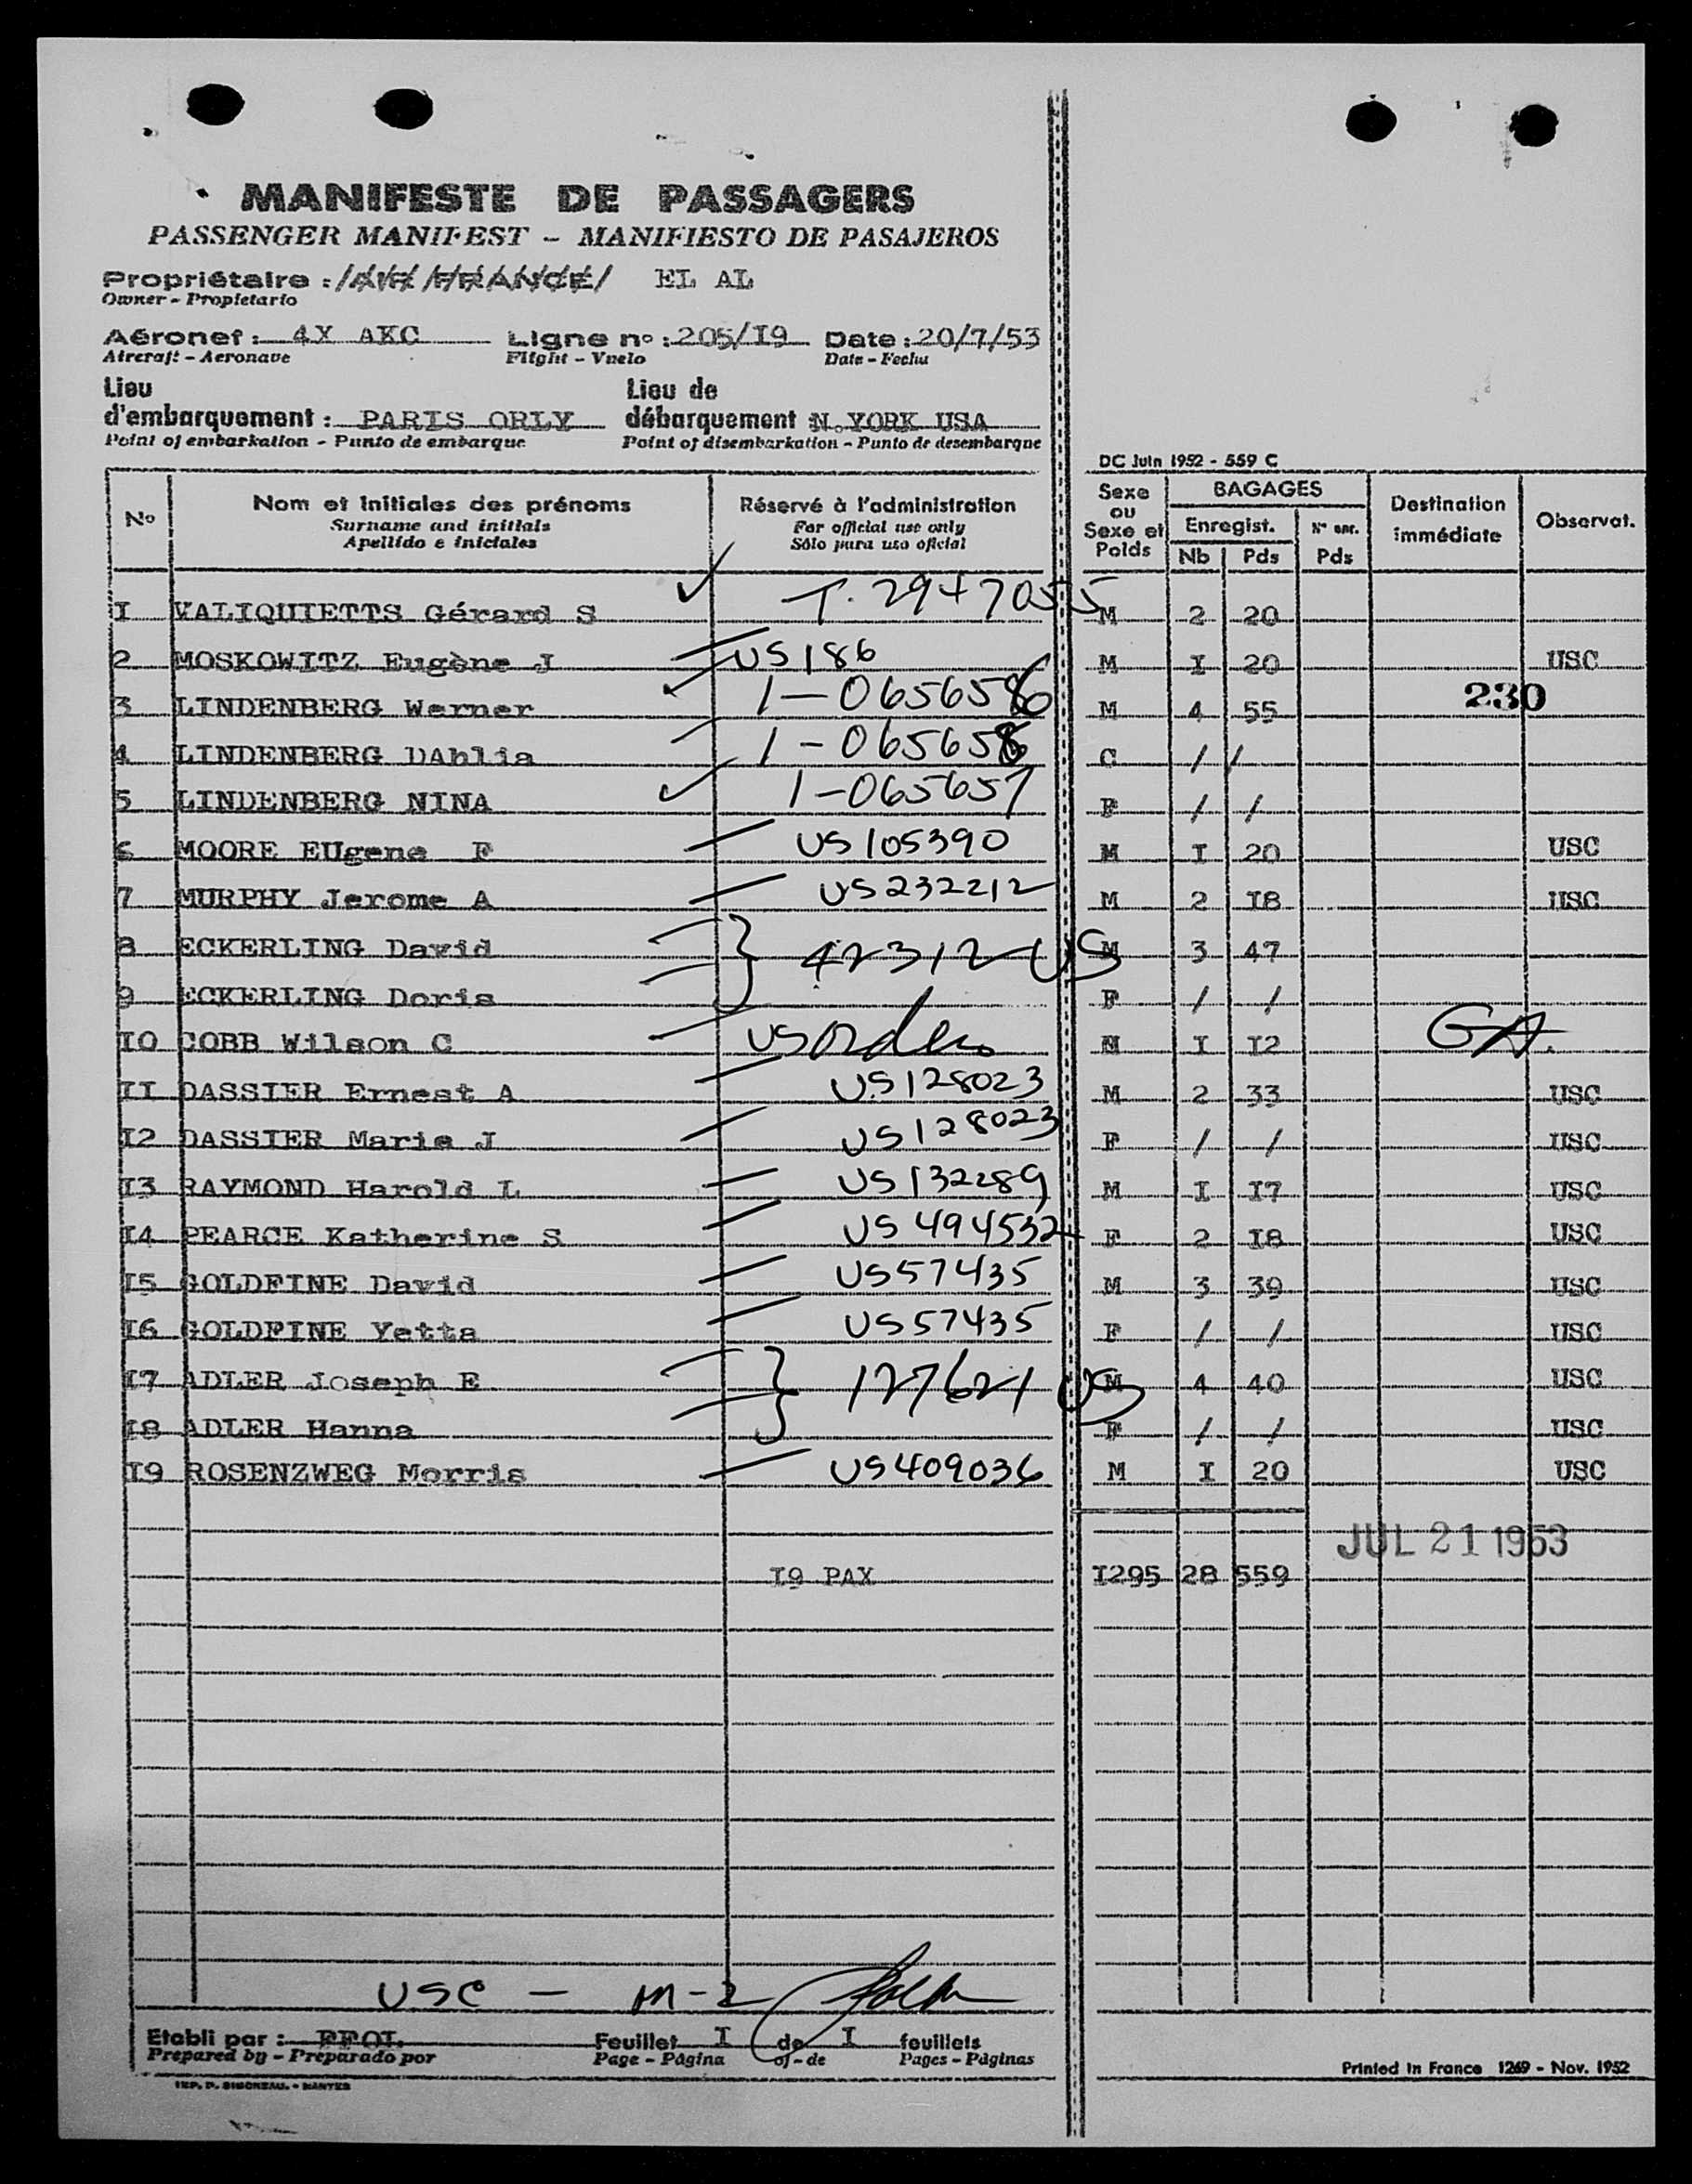 MANIFESTE DE PASSAGERS
PASSENGER MANIFEST – MANIFIESTO DE PASAJEROS
Propriétaire : /AIR FRANCE/ EL AL
Owner - Propietario
Aéronef : 4X AKC Ligne nº : 205/I9 Date : 20/7/53
Aircraft - Aeronave Flight - Vuelo Date - Fecha
Lieu Lieu de
d'embarquement : PARIS ORLY débarquement N.YORK USA
Point of embarkation - Punto de embarque Point of disembarkation - Punto de desembarque
DC Juin 1952 - 559 C
Nº Nom et initiales des prénoms Réservé à l'administration Sexe ou Sexe et Poids BAGAGES Destination immédiate Observat.
Surname and initials For official use only Enregist. Nº enr.
Apellido e iniciales Sólo para uso oficial Nb Pds Pds
I VALIQUIETTS Gérard S T. 2947055 M 2 20
2 MOSKOWITZ Eugène J US 186 M I 20 USC
230
3 LINDENBERG Werner 1-065658 M 4 55
4 LINDENBERG DAhlia 1-065658 C / /
5 LINDENBERG NINA 1-065657 F / /
6 MOORE EUgene F US 105390 M I 20 USC
7 MURPHY Jerome A US 232212 M 2 I8 USC
8 ECKERLING David } 42312 US M 3 47
9 ECKERLING Doris F / /
I0 COBB Wilson C US Orders M I I2 GA.
II DASSIER Ernest A US 128023 M 2 33 USC
I2 DASSIER Marie J US 128023 F / / USC
I3 RAYMOND Harold L US 132289 M I I7 USC
I4 PEARCE Katherine S US 494532 F 2 I8 USC
I5 GOLDFINE David US 57435 M 3 39 USC
I6 GOLDFINE Yetta US 57435 F / / USC
I7 ADLER Joseph E } 127621 US M 4 40 USC
I8 ADLER Hanna F / / USC
I9 ROSENZWEG Morris US 409036 M I 20 USC
JUL 21 1953
I9 PAX I295 28 559
USC – M-2
Etabli par : Feuillet I de I feuillets
Prepared by - Preparado por Page - Página of - de Pages - Páginas
Printed in France 1269 - Nov. 1952
IMP. P. SIMONEAU. - NANTES